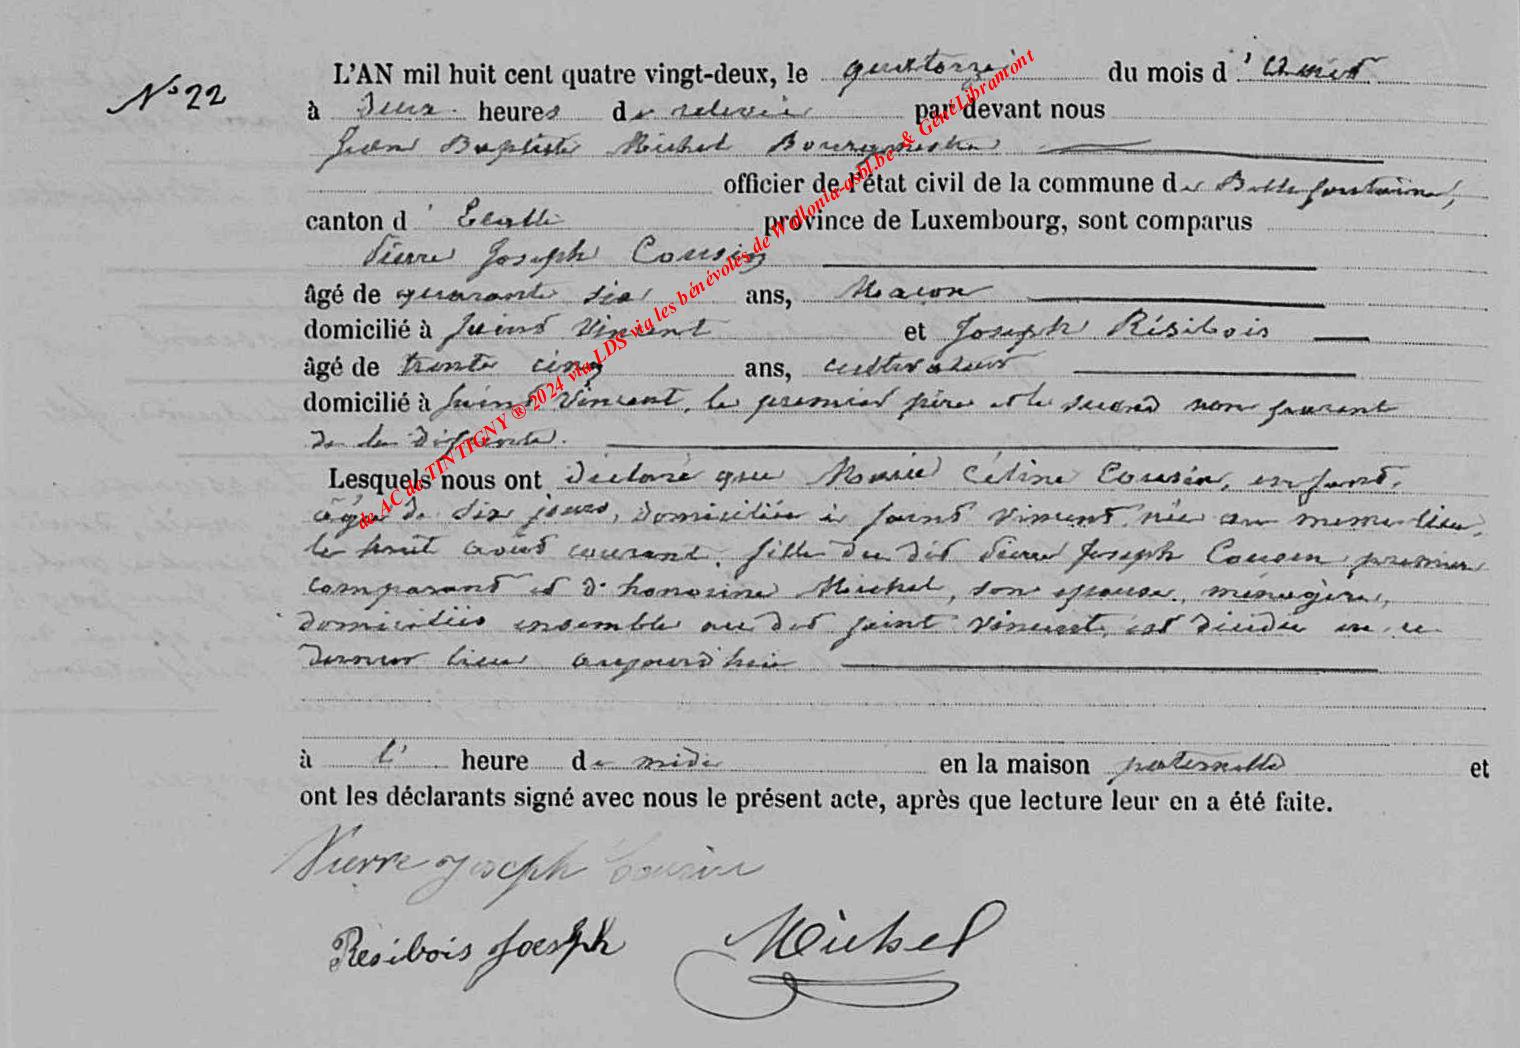 N° 22
L'AN mil huit cent quatre vingt-deux, le quatorze du mois d'Aout
à deux heures de relevée par devant nous
Jean Baptiste Michel Bourgmestre
officier de l'état civil de la commune de Bellefontaine,
canton d'Etalle province de Luxembourg, sont comparus
Pierre Joseph Cousin
âgé de quarante six ans, Maçon
domicilié à Saint Vincent et Joseph Résibois
âgé de trente cinq ans, cultivateur
domicilié à Saint Vincent, le premier père et le second non parent
de la défunte.
Lesquels nous ont déclaré que Marie Céline Cousin, enfant,
âgée de six jours, domiciliée à Saint Vincent née au meme lieu,
le huit août courant, fille du dit Pierre Joseph Cousin premier
comparant et d'honorine Michel, son épouse, ménagère,
domiciliés ensemble au dit Saint Vincent, est décédée en ce
dernier lieu aujourd'hui
à l' heure de midi en la maison paternelle et
ont les déclarants signé avec nous le présent acte, après que lecture leur en a été faite.
Pierre Joseph Cousin
Résibois Joseph Michel
de AC de TINTIGNY ® 2024 via LDS via les bénévoles de Wallonia-asbl.be & GénéLibramont